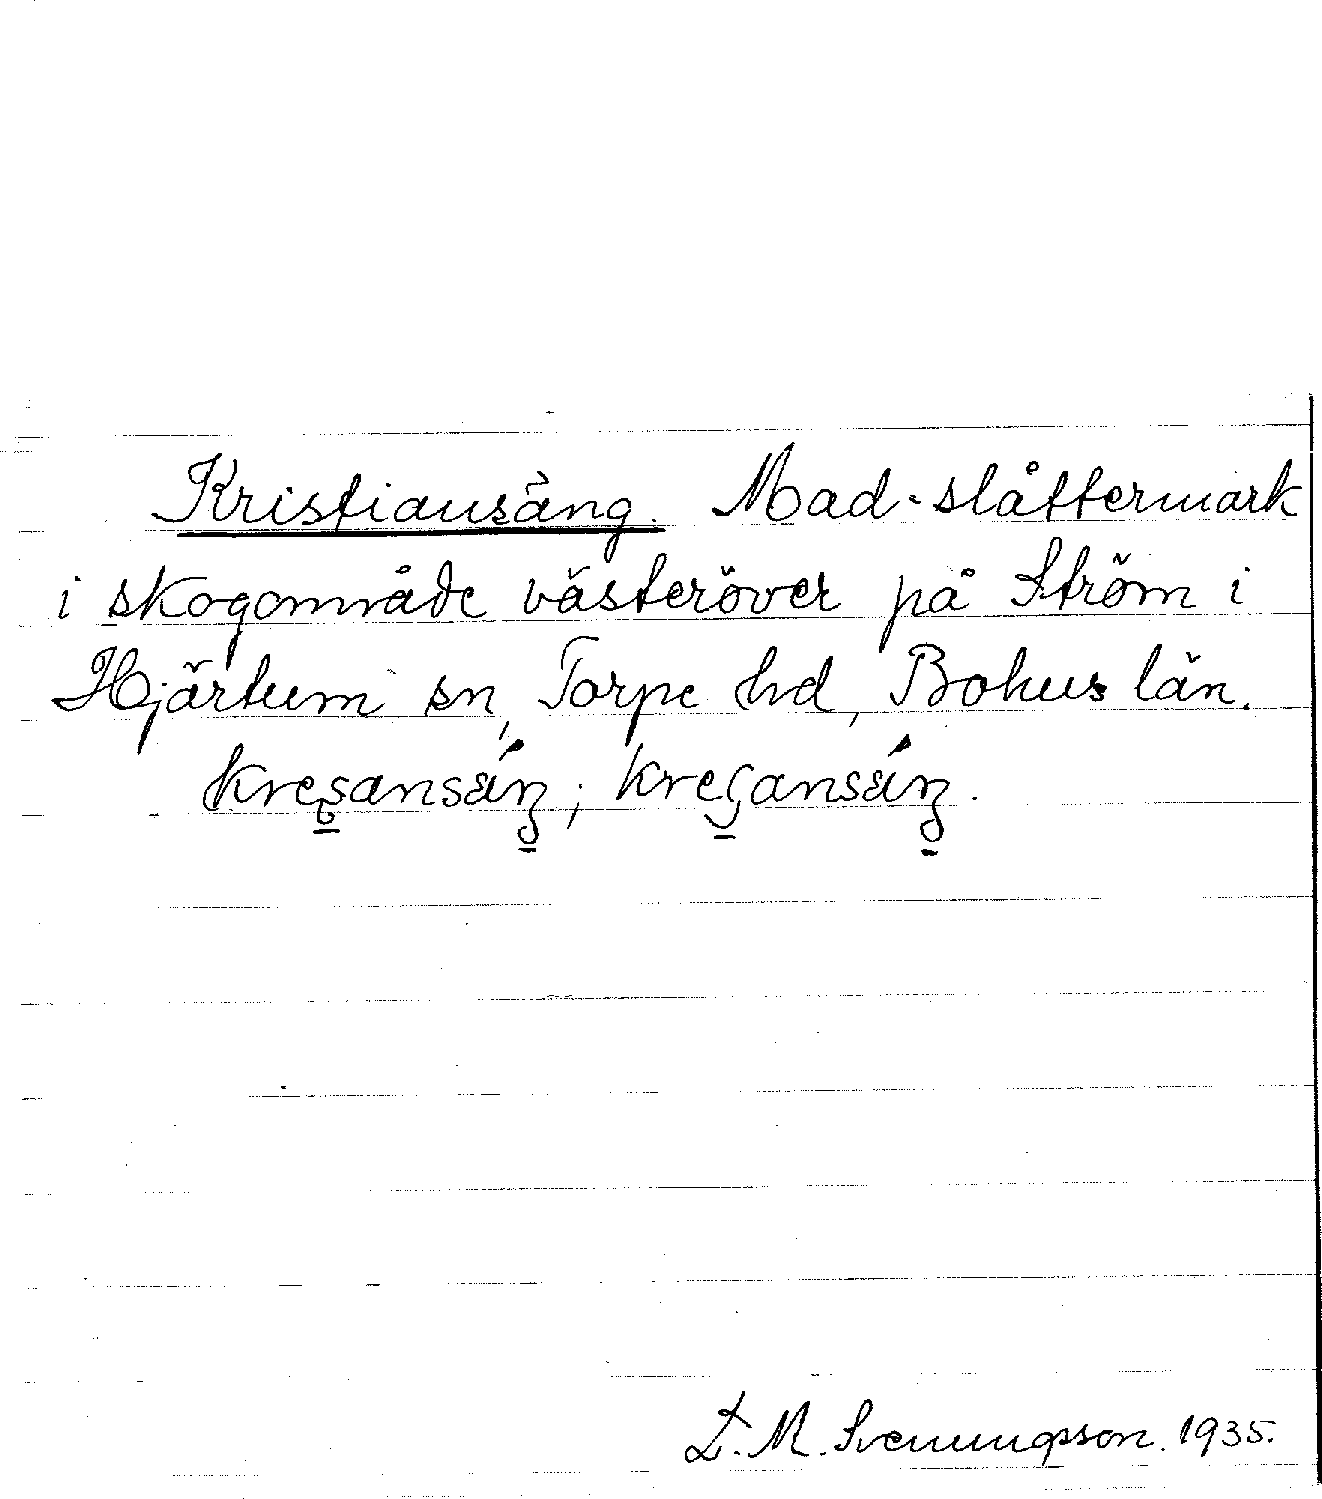 Kristiansäng. Mad-slåttermark
i skogområde västeröver på Ström i
Hjärtum sn, Torpe hd, Bohus län.
kresansáŋ; kreʃansáŋ.
L. M. Svenungsson. 1935.